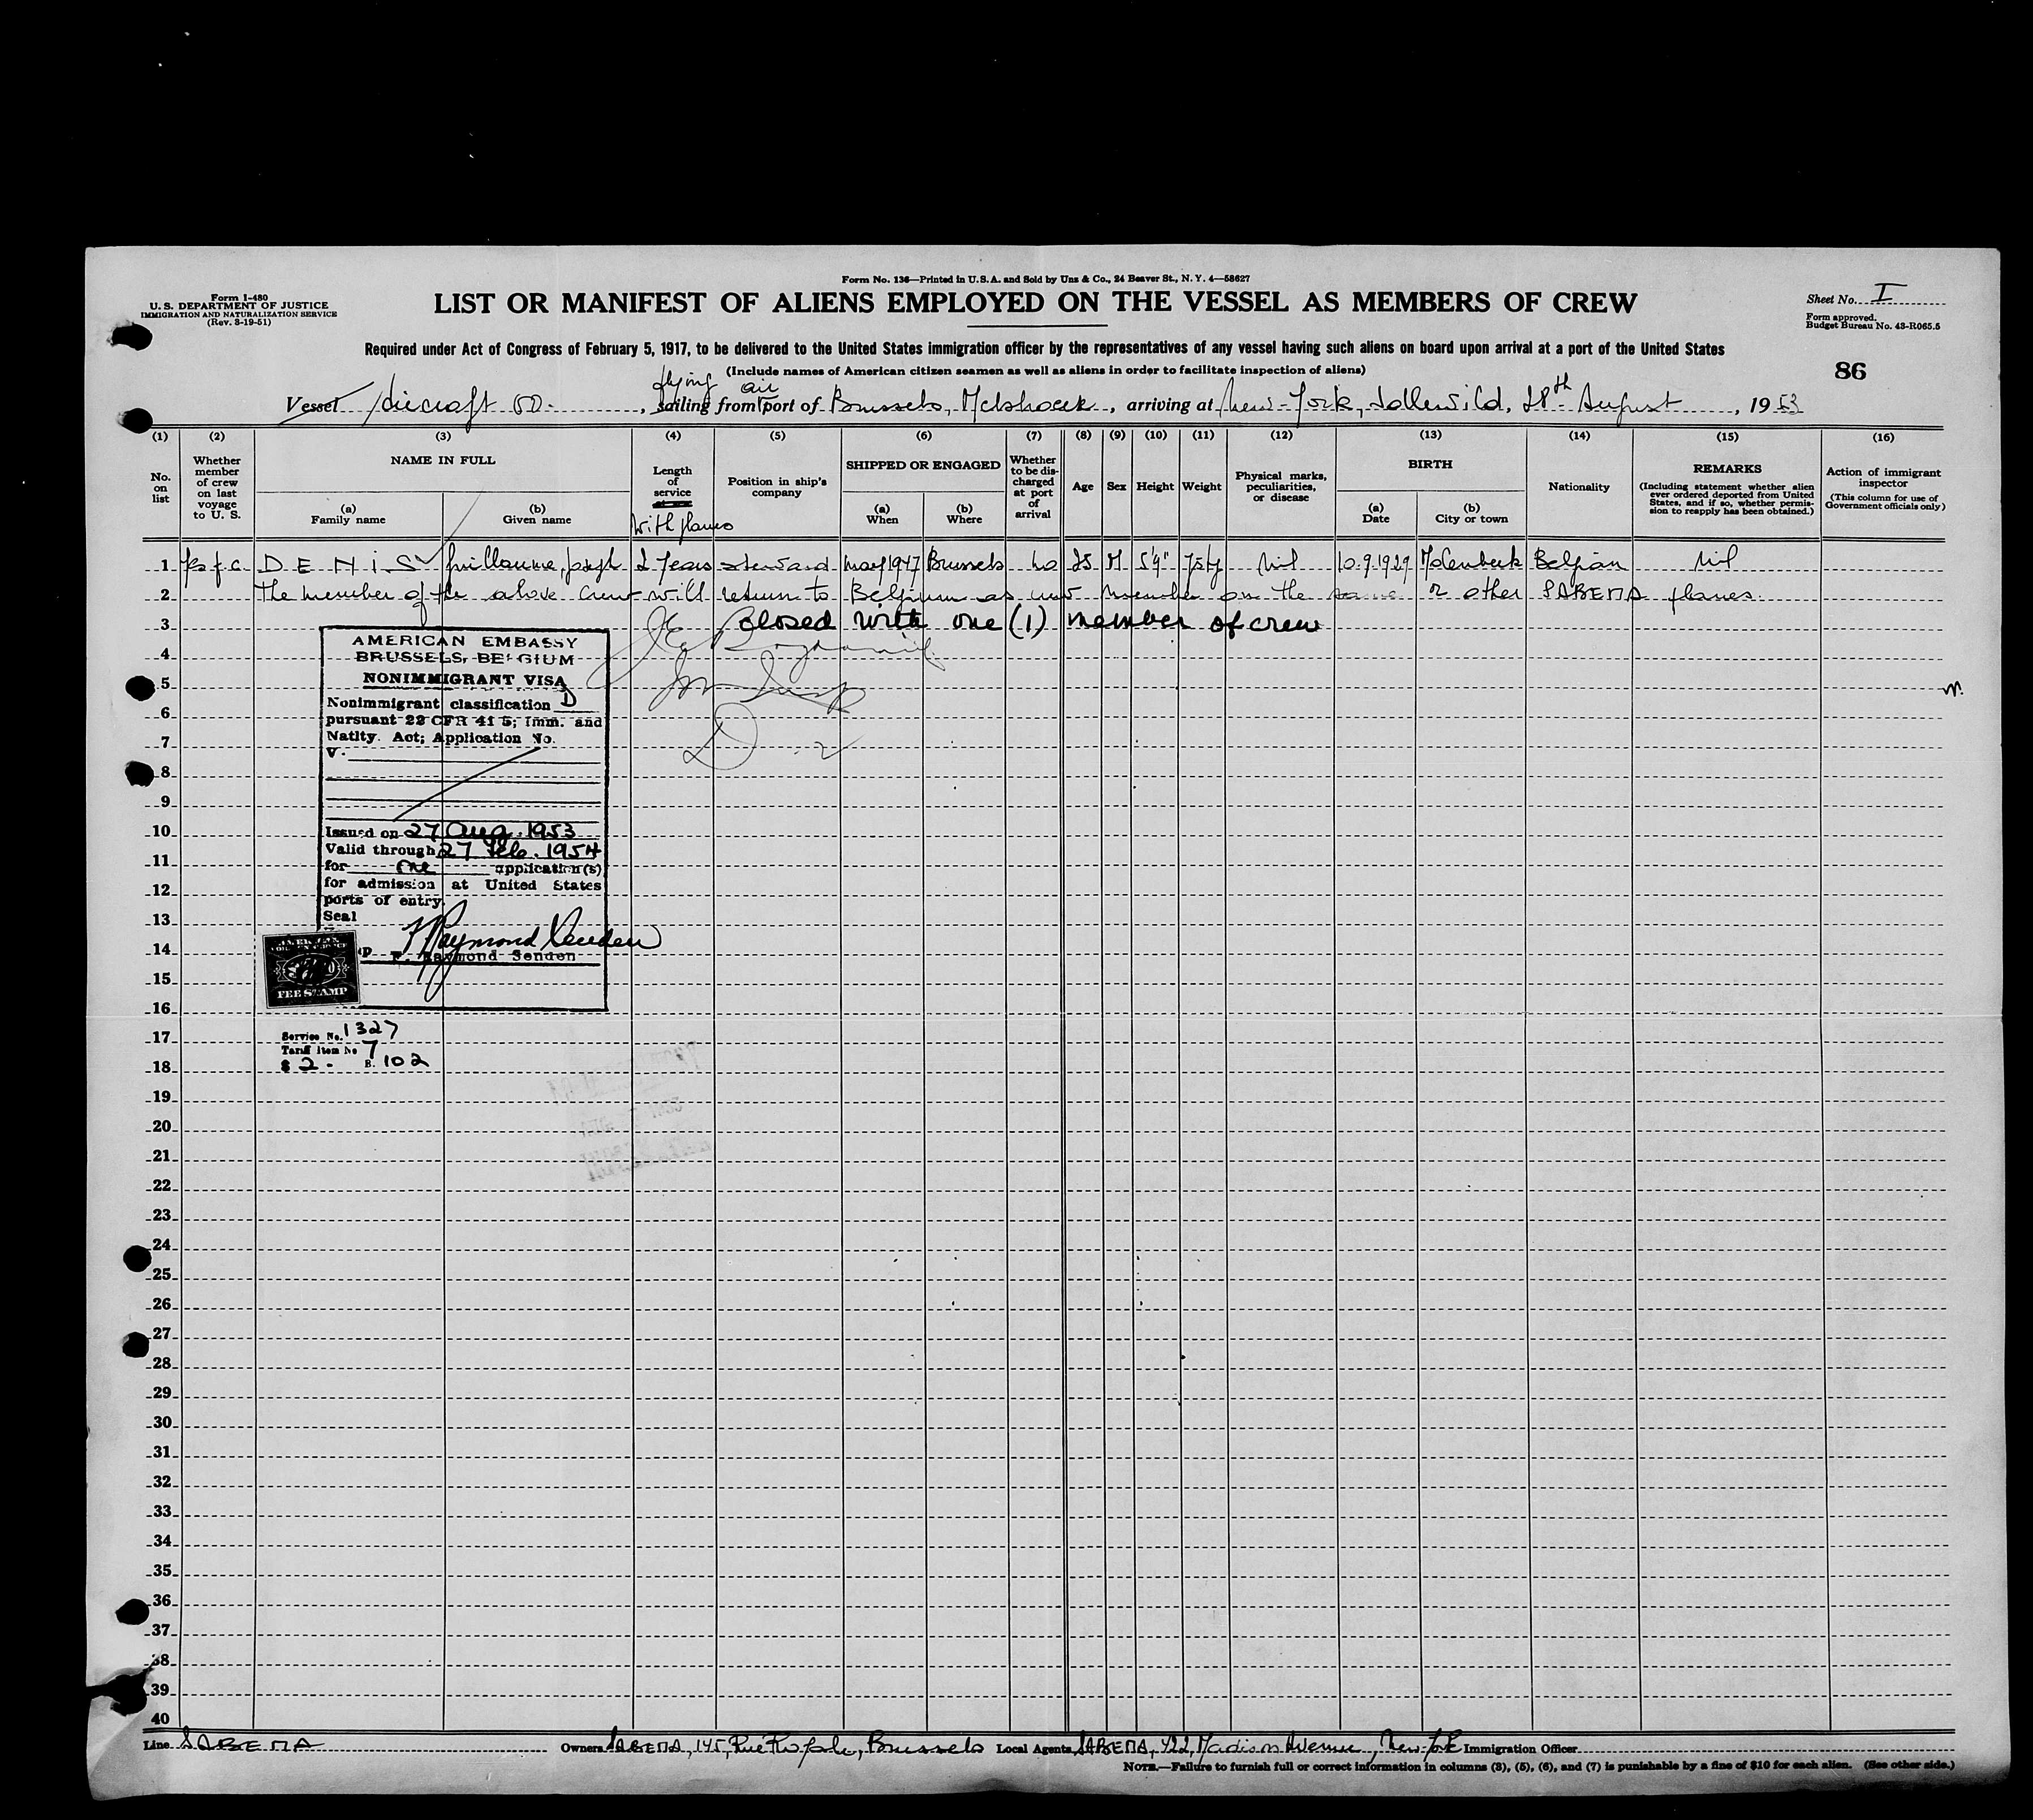 Form No. 136—Printed in U.S.A. and Sold by Uns & Co., 24 Beaver St., N. Y. 4—58627
Form I-480
U. S. DEPARTMENT OF JUSTICE
IMMIGRATION AND NATURALIZATION SERVICE
(Rev. 3-19-51)
LIST OR MANIFEST OF ALIENS EMPLOYED ON THE VESSEL AS MEMBERS OF CREW
Sheet No. I
Form approved.
Budget Bureau No. 43-R065.5
Required under Act of Congress of February 5, 1917, to be delivered to the United States immigration officer by the representatives of any vessel having such aliens on board upon arrival at a port of the United States
(Include names of American citizen seamen as well as aliens in order to facilitate inspection of aliens)
86
flying air
Vessel Aircraft OO- , sailing from port of Brussels, Melsbroek , arriving at New-York, Idlewild, 28th August , 1953
(1) (2) (3) (4) (5) (6) (7) (8) (9) (10) (11) (12) (13) (14) (15) (16)
No. on list
Whether member of crew on last voyage to U. S.
NAME IN FULL
(a) Family name
(b) Given name
Length of service
with planes
Position in ship's company
SHIPPED OR ENGAGED
(a) When
(b) Where
Whether to be discharged at port of arrival
Age
Sex
Height
Weight
Physical marks, peculiarities, or disease
BIRTH
(a) Date
(b) City or town
Nationality
REMARKS
(Including statement whether alien ever ordered deported from United States, and if so, whether permission to reapply has been obtained.)
Action of immigrant inspector
(This column for use of Government officials only)
1 DENIS Guillaume, Joseph 2 Years steward may 1947 Brussels no 25 M 5'9" 75kg Nil 10.9.1929 Molenbeek Belgian Nil
2 The member of the above Crew will return to Belgium as crew member on the same or other SABENA planes.
3 Closed with one (1) member of crew
4
5
6
7
8
9
10
11
12
13
14
15
16
17
18
19
20
21
22
23
24
25
26
27
28
29
30
31
32
33
34
35
36
37
38
39
40
AMERICAN EMBASSY
BRUSSELS, BELGIUM
NONIMMIGRANT VISA
Nonimmigrant classification D
pursuant 22 CFR 41 5; Imm. and
Natlty. Act; Application No.
V.
Issued on 27 Aug. 1953
Valid through 27 Feb. 1954
for one application(s)
for admission at United States
ports of entry.
Seal
F. Raymond Senden
AMERICAN
FEE STAMP
Service No. 1327
Tariff Item No 7
$ 2. - B. 102
D-2
Line SABENA Owners SABENA, 145, Rue Royale, Brussels Local Agents SABENA, 422, Madison Avenue, New-York Immigration Officer
NOTE.—Failure to furnish full or correct information in columns (3), (5), (6), and (7) is punishable by a fine of $10 for each alien. (See other side.)